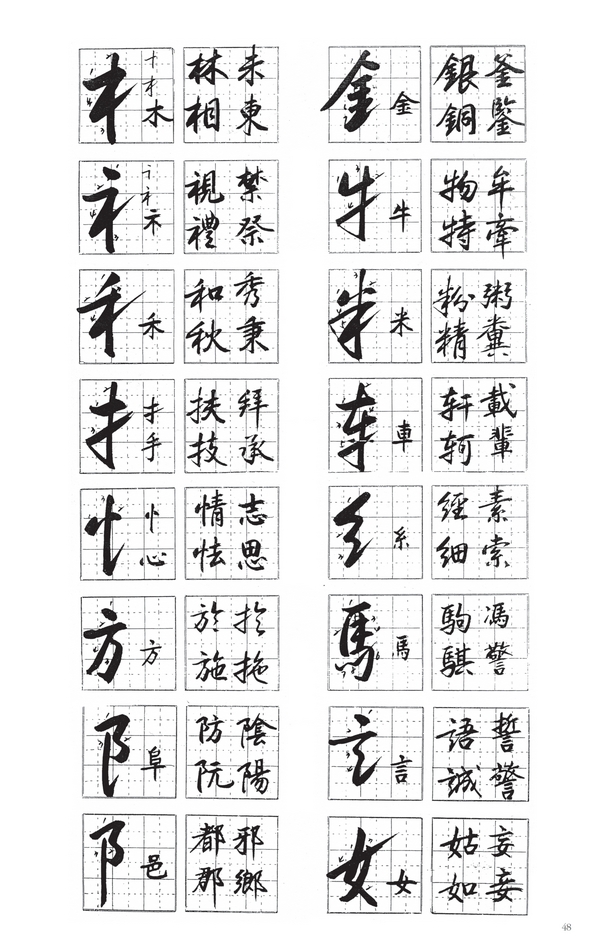 木 林未
相東
金 金 銀釜
銅鋻
礻 示 視禁
禮祭
牛 牛 物牟
特牽
禾 禾 和秀
秋秉
米 米 粉粥
精糞
扌 扌手 扶拜
技承
車 車 轩載
轲輩
忄 忄心 情志
怯思
糸 經素
細索
方 方 於扵
施拖
馬 馬 駒馮
騏驚
阝 阜 防陰
阮陽
言 言 語誓
誠警
阝 邑 都邪
郡鄉
女 女 姑妄
如妾
48